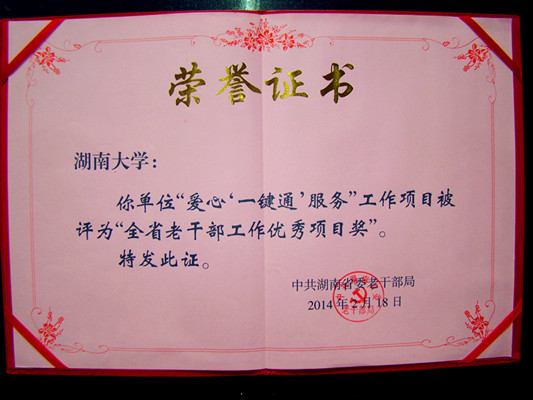 荣誉证书
湖南大学：
你单位“爱心‘一键通’服务”工作项目被
评为“全省老干部工作优秀项目奖”。
特发此证。
中共湖南省委老干部局
2014年2月18日
老干部局